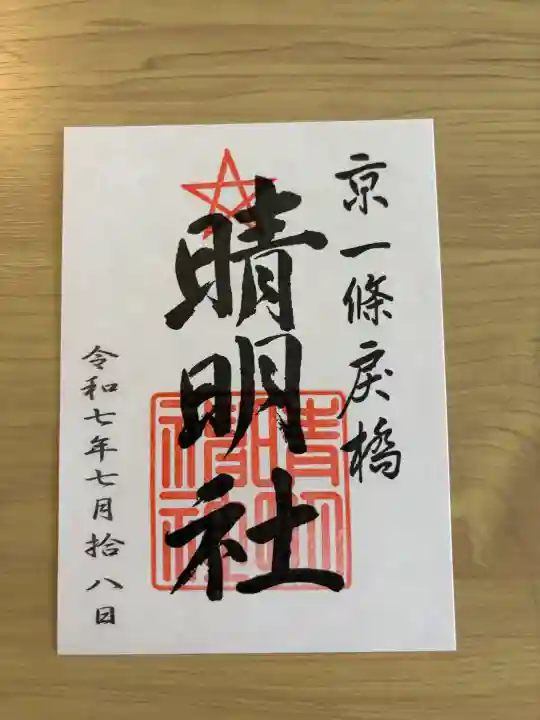 京一條戻橋
晴明社
令和七年七月拾八日